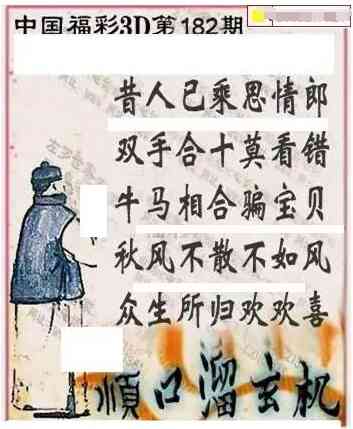 中国福彩3D第182期
昔人已乘思情郎
双手合十莫看错
牛马相合骗宝贝
秋风不散不如风
众生所归欢欢喜
顺口溜玄机